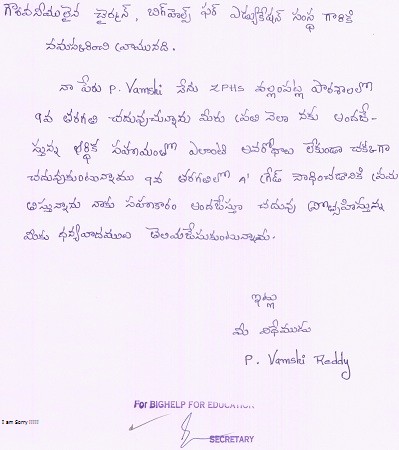 గౌరవనీయులైన చైర్మన్, బిగ్‌హెల్ప్ ఫర్ ఎడ్యుకేషన్ సంస్థ గారికి
నమస్కరించి వ్రాయునది.
నా పేరు P. Vamski నేను ZPHS పల్లంపట్ల పాఠశాలలో
9వ తరగతి చదువుచున్నాను మీరు ప్రతి నెలా నకు అందజే-
స్తున్న ఆర్థిక సహాయంతో ఎలాంటి అవరోధాలు లేకుండా చక్కగా
చదువుకుంటున్నాము 9వ తరగతిలో A' గ్రేడ్ సాధించడానికి
నాకు సహకారం అందజేస్తూ చదువు ప్రోత్సహిస్తున్న
మీకు ధన్యవాదములు తెలియజేసుకుంటున్నాను.
ఇట్లు
మీ విధేయుడు
P. Vamski Reddy
For BIGHELP FOR EDUCATION
I am Sorry !!!!!
SECRETARY